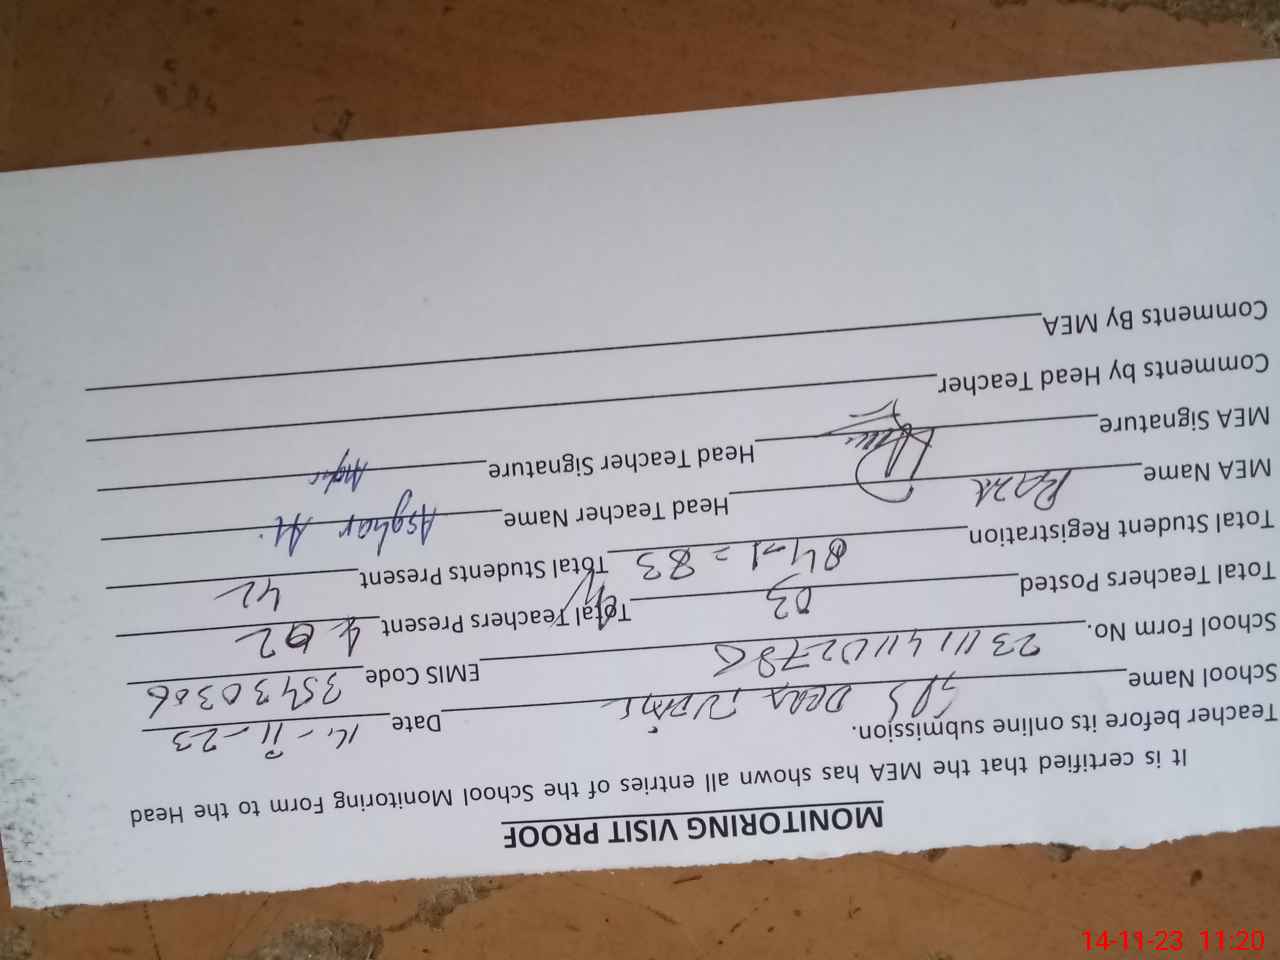 MONITORING VISIT PROOF
It is certified that the MEA has shown all entries of the School Monitoring Form to the Head
Teacher before its online submission.
School Name GPS Dera Date 14-11-23
School Form No. 23111411102786 EMIS Code 35430306
Total Teachers Posted 03 Total Teachers Present 02
Total Student Registration 84-1=83 Total Students Present 42
MEA Name Raza Head Teacher Name Asghar Ali
MEA Signature Head Teacher Signature Asghar
Comments by Head Teacher
Comments By MEA
14-11-23 11:20